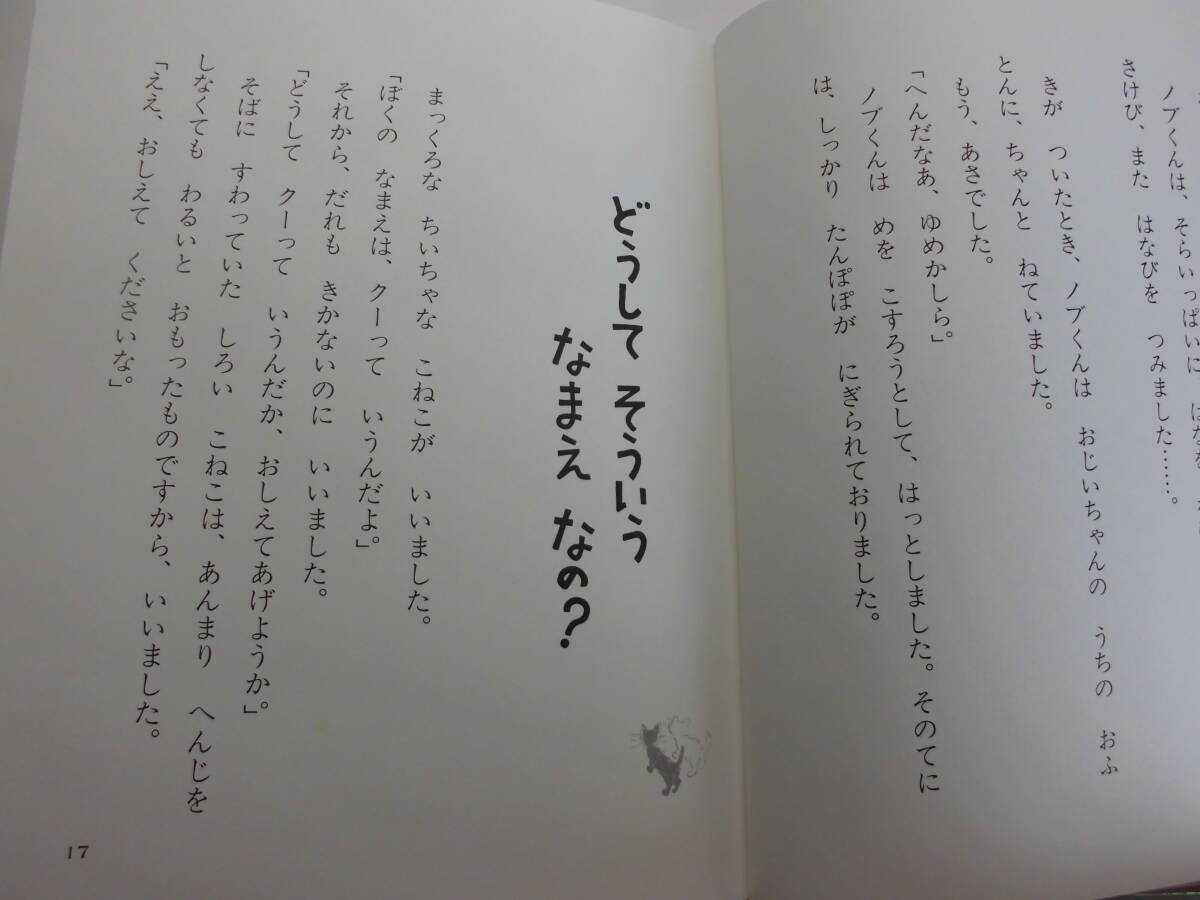 ノブくんは、そらいっぱいに はなを
さけび、また はなびを つみました……。
きが ついたとき、ノブくんは おじいちゃんの うちの おふ
とんに、ちゃんと ねていました。
もう、あさでした。
「へんだなあ、ゆめかしら。」
ノブくんは めを こすろうとして、はっとしました。そのてに
は、しっかり たんぽぽが にぎられておりました。
どうして そういう
なまえ なの?
まっくろな ちいちゃな こねこが いいました。
「ぼくの なまえは、クーって いうんだよ。」
それから、だれも きかないのに いいました。
「どうして クーって いうんだか、おしえてあげようか。」
そばに すわっていた しろい こねこは、あんまり へんじを
しなくても わるいと おもったものですから、いいました。
「ええ、おしえて くださいな。」
17